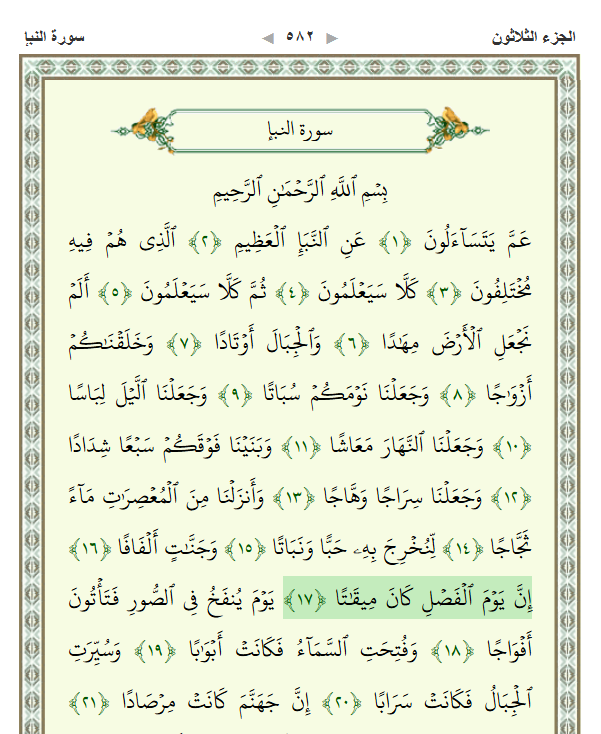 الجزء الثلاثون ◀ ٥٨٢ ▶ سورة النبإ
سورة النبإ
بِسْمِ ٱللَّهِ ٱلرَّحْمَٰنِ ٱلرَّحِيمِ
عَمَّ يَتَسَآءَلُونَ ﴿١﴾ عَنِ ٱلنَّبَإِ ٱلْعَظِيمِ ﴿٢﴾ ٱلَّذِى هُمْ فِيهِ
مُخْتَلِفُونَ ﴿٣﴾ كَلَّا سَيَعْلَمُونَ ﴿٤﴾ ثُمَّ كَلَّا سَيَعْلَمُونَ ﴿٥﴾ أَلَمْ
نَجْعَلِ ٱلْأَرْضَ مِهَٰدًا ﴿٦﴾ وَٱلْجِبَالَ أَوْتَادًا ﴿٧﴾ وَخَلَقْنَٰكُمْ
أَزْوَٰجًا ﴿٨﴾ وَجَعَلْنَا نَوْمَكُمْ سُبَاتًا ﴿٩﴾ وَجَعَلْنَا ٱلَّيْلَ لِبَاسًا
﴿١٠﴾ وَجَعَلْنَا ٱلنَّهَارَ مَعَاشًا ﴿١١﴾ وَبَنَيْنَا فَوْقَكُمْ سَبْعًا شِدَادًا
﴿١٢﴾ وَجَعَلْنَا سِرَاجًا وَهَّاجًا ﴿١٣﴾ وَأَنزَلْنَا مِنَ ٱلْمُعْصِرَٰتِ مَآءً
ثَجَّاجًا ﴿١٤﴾ لِّنُخْرِجَ بِهِۦ حَبًّا وَنَبَاتًا ﴿١٥﴾ وَجَنَّٰتٍ أَلْفَافًا ﴿١٦﴾
إِنَّ يَوْمَ ٱلْفَصْلِ كَانَ مِيقَٰتًا ﴿١٧﴾ يَوْمَ يُنفَخُ فِى ٱلصُّورِ فَتَأْتُونَ
أَفْوَاجًا ﴿١٨﴾ وَفُتِحَتِ ٱلسَّمَآءُ فَكَانَتْ أَبْوَٰبًا ﴿١٩﴾ وَسُيِّرَتِ
ٱلْجِبَالُ فَكَانَتْ سَرَابًا ﴿٢٠﴾ إِنَّ جَهَنَّمَ كَانَتْ مِرْصَادًا ﴿٢١﴾